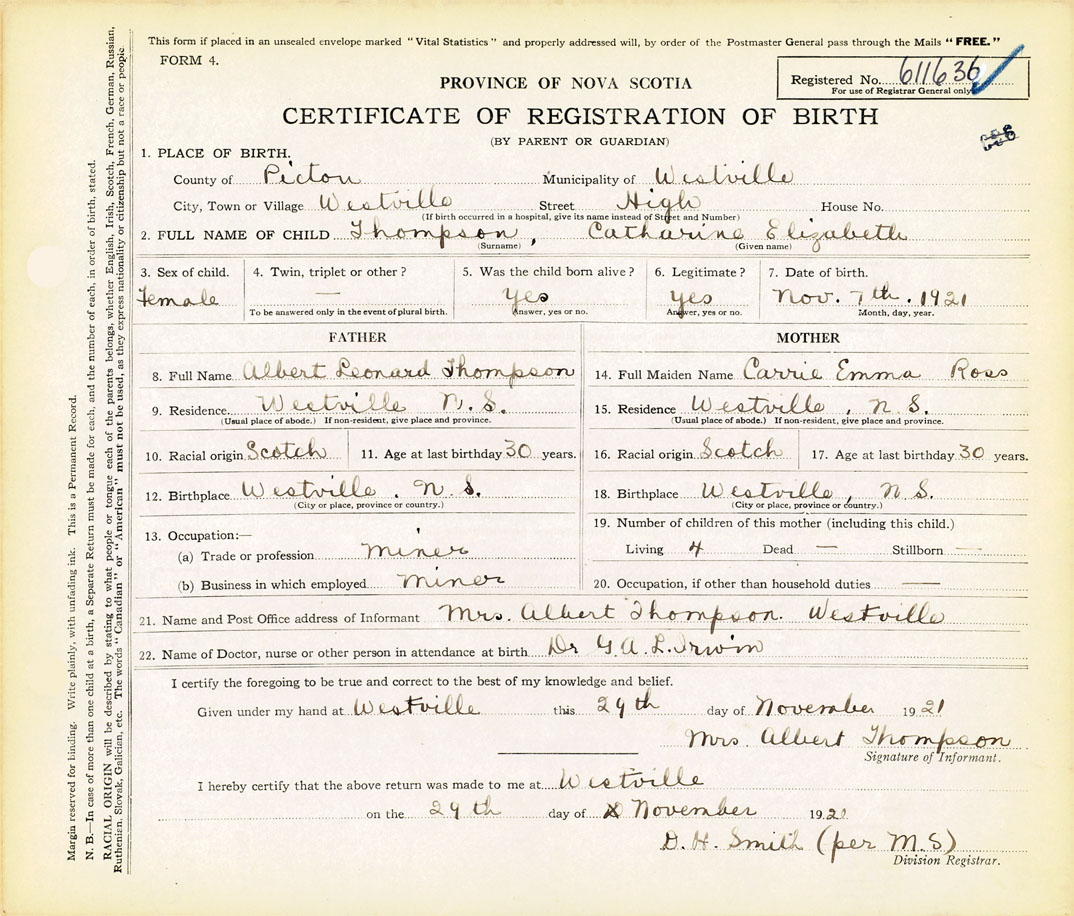 This form if placed in an unsealed envelope marked "Vital Statistics" and properly addressed will, by order of the Postmaster General pass through the Mails "FREE."
FORM 4.
PROVINCE OF NOVA SCOTIA
Registered No. 611636
For use of Registrar General only
CERTIFICATE OF REGISTRATION OF BIRTH
(BY PARENT OR GUARDIAN)
1. PLACE OF BIRTH.
County of Picton Municipality of Westville
City, Town or Village Westville Street High House No.
(If birth occurred in a hospital, give its name instead of Street and Number)
2. FULL NAME OF CHILD Thompson, Catharine Elizabeth
(Surname) (Given name)
3. Sex of child. 4. Twin, triplet or other? 5. Was the child born alive? 6. Legitimate? 7. Date of birth.
Female — Yes yes Nov. 7th. 1921
To be answered only in the event of plural birth. Answer, yes or no. Answer, yes or no. Month, day, year.
FATHER
8. Full Name Albert Leonard Thompson
9. Residence. Westville N.S.
(Usual place of abode.) If non-resident, give place and province.
10. Racial origin Scotch 11. Age at last birthday 30 years.
12. Birthplace Westville. N.S.
(City or place, province or country.)
13. Occupation:—
(a) Trade or profession miner
(b) Business in which employed miner
MOTHER
14. Full Maiden Name Carrie Emma Ross
15. Residence Westville, N.S.
(Usual place of abode.) If non-resident, give place and province.
16. Racial origin Scotch 17. Age at last birthday 30 years.
18. Birthplace Westville, N.S.
(City or place, province or country.)
19. Number of children of this mother (including this child.)
Living 4 Dead — Stillborn —
20. Occupation, if other than household duties —
21. Name and Post Office address of Informant Mrs. Albert Thompson. Westville
22. Name of Doctor, nurse or other person in attendance at birth Dr G.A.L. Irwin
I certify the foregoing to be true and correct to the best of my knowledge and belief.
Given under my hand at Westville this 29th day of November 1921
Mrs. Albert Thompson
Signature of Informant.
I hereby certify that the above return was made to me at Westville
on the 29th day of November 1921
D. H. Smith (per M.S)
Division Registrar.
Margin reserved for binding. Write plainly, with unfading ink. This is a Permanent Record.
N. B.—In case of more than one child at a birth, a Separate Return must be made for each, and the number of each, in order of birth, stated.
RACIAL ORIGIN will be described by stating to what people or tongue each of the parents belongs, whether English, Irish, Scotch, French, German, Russian,
Ruthenian, Slovak, Galician, etc. The words "Canadian" or "American" must not be used, as they express nationality or citizenship but not a race or people